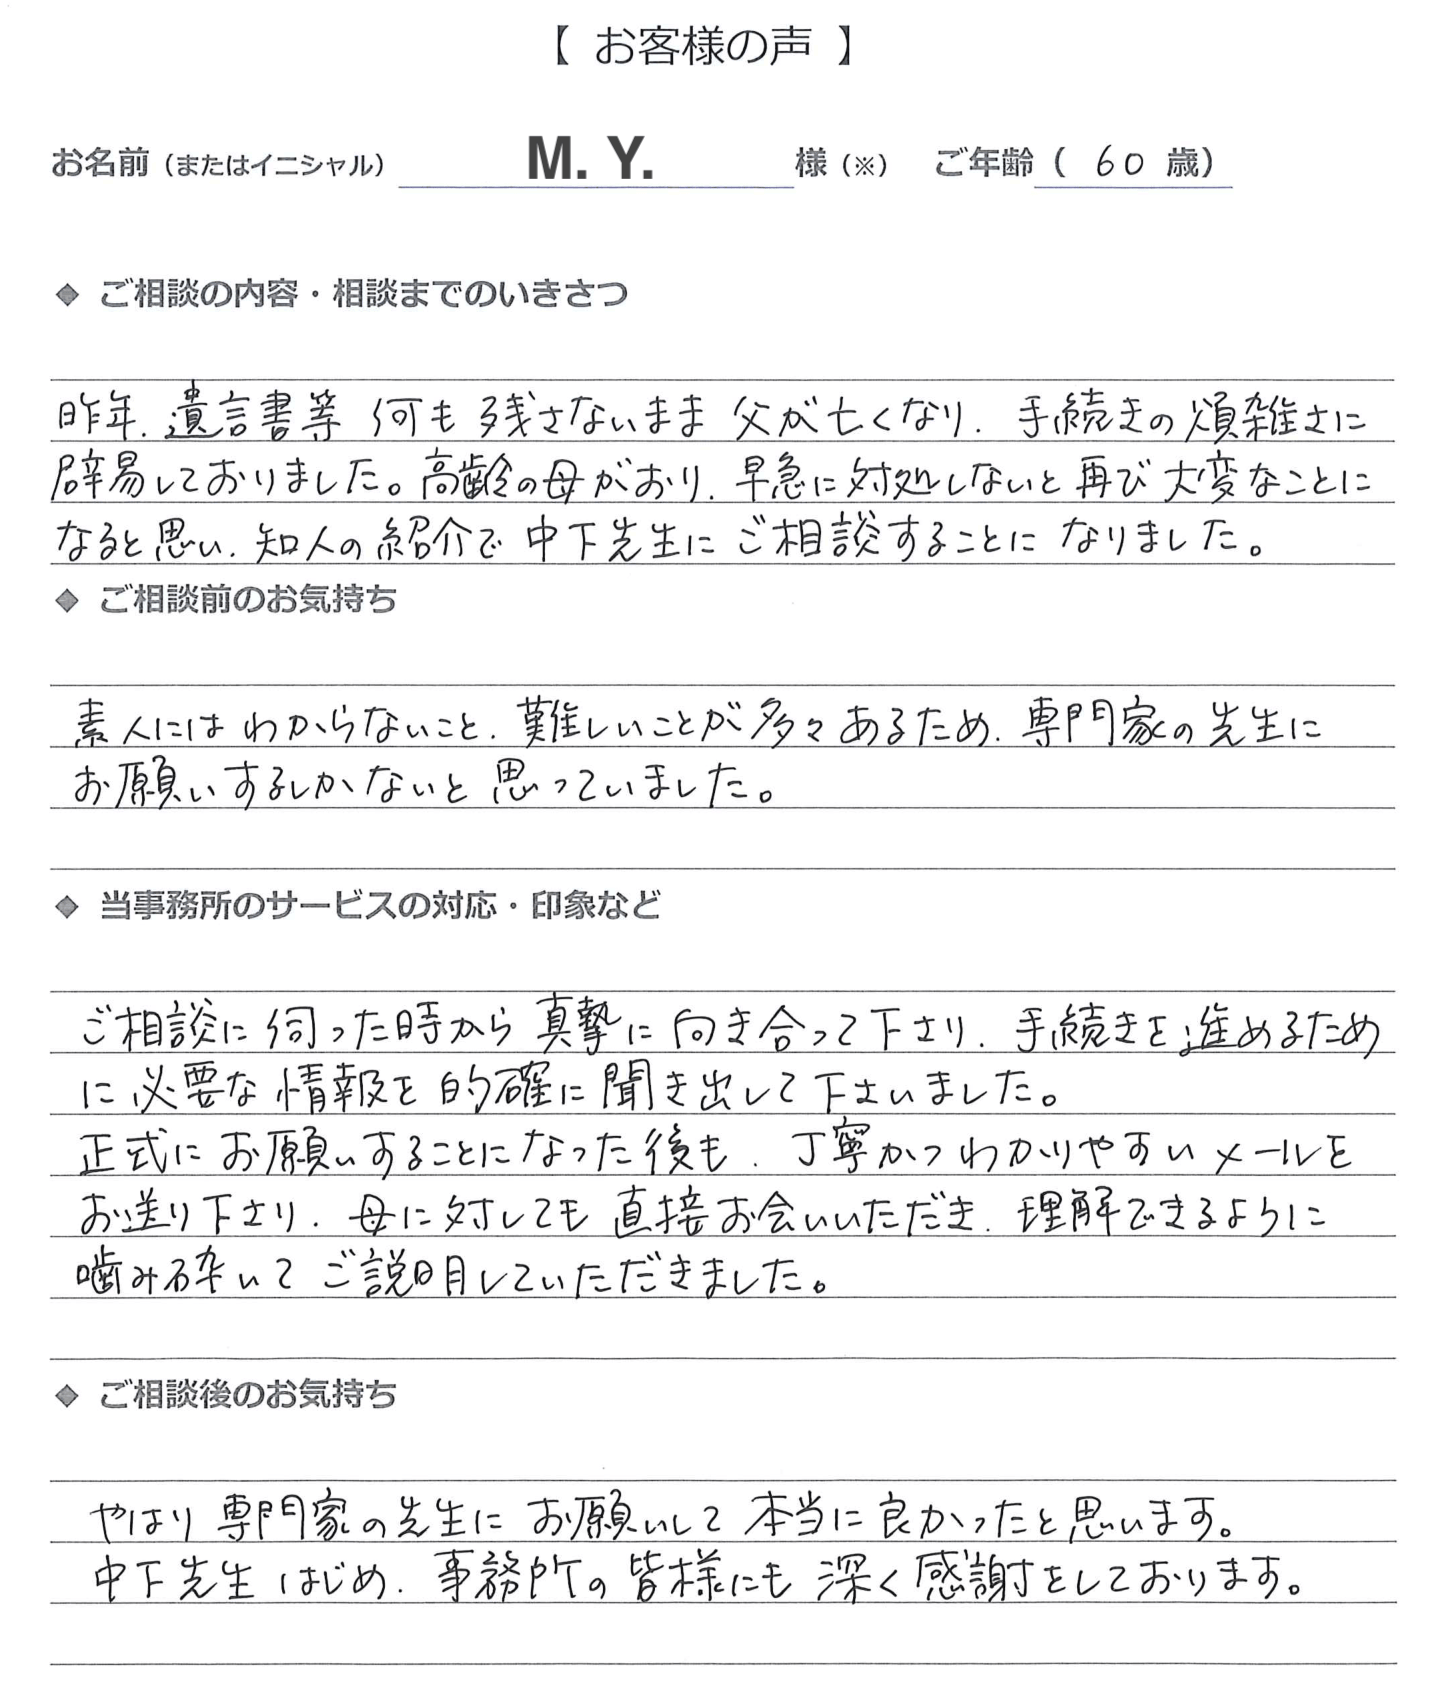 【 お客様の声 】
お名前（またはイニシャル） M. Y. 様（※） ご年齢（ 60 歳）
◆ ご相談の内容・相談までのいきさつ
昨年、遺言書等 何も残さないまま 父が亡くなり、手続きの煩雑さに
辟易しておりました。高齢の母がおり、早急に対処しないと再び大変なことに
なると思い、知人の紹介で中下先生にご相談することになりました。
◆ ご相談前のお気持ち
素人にはわからないこと、難しいことが多々あるため、専門家の先生に
お願いするしかないと思っていました。
◆ 当事務所のサービスの対応・印象など
ご相談に伺った時から真摯に向き合って下さり、手続きを進めるため
に必要な情報を的確に聞き出して下さいました。
正式にお願いすることになった後も、丁寧かつわかりやすいメールを
お送り下さり、母に対しても直接お会いいただき、理解できるように
噛み砕いてご説明していただきました。
◆ ご相談後のお気持ち
やはり専門家の先生にお願いして本当に良かったと思います。
中下先生はじめ、事務所の皆様にも深く感謝をしております。